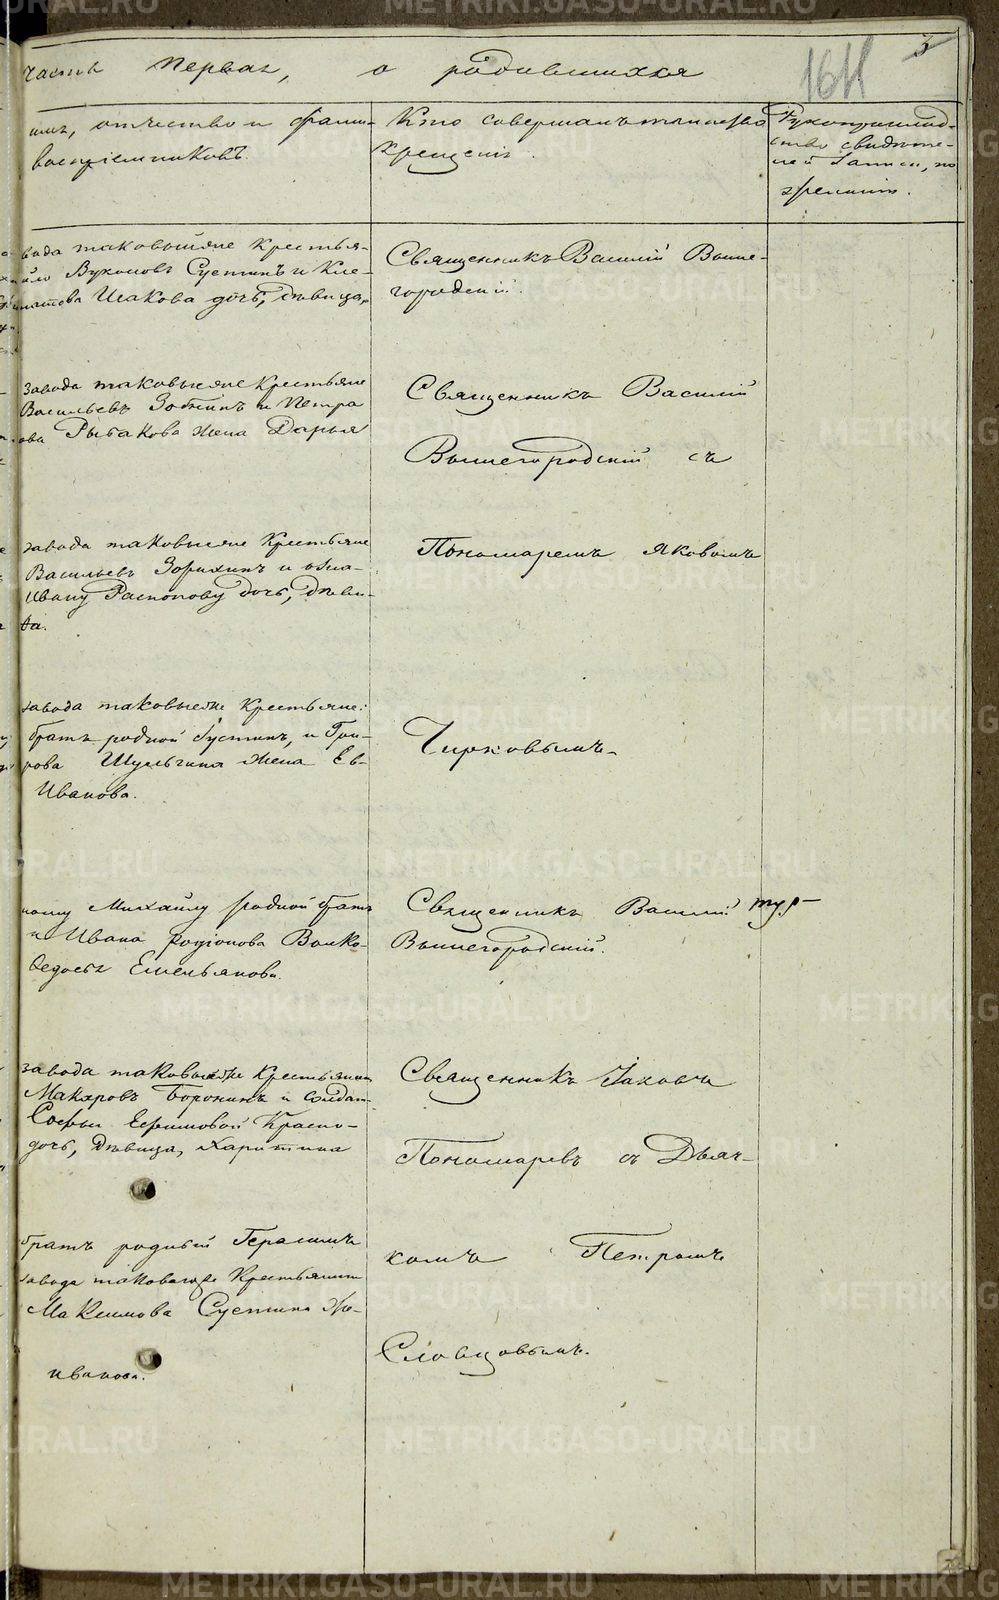 часть первая, о родившихся
3
имя, отчество и фами-
воспріемниковъ.
Кто совершалъ таинство
крещенія.
Рукоприклад-
ство свидѣте-
лей записи, по
желанію.
вода таковыйже крестья-
Суетинъ и Кле-
Исакова дочь, дѣвица,
Священникъ Василій Выше-
городскій.
завода таковыеже крестьяне
Васильевъ Зобнинъ и Петра
ова Рыбакова жена Дарья
Священникъ Василій
Вышегородскій съ
завода таковыеже крестьяне
Васильевъ Зорихинъ и
Ивану Распопову дочь, дѣви-
ца.
Пономаремъ Яковомъ
завода таковыеже крестьяне:
братъ родной Іустинъ, и Гри-
рова Шульгина жена Ев-
Иванова.
Чирковымъ.
ному Михаилу родной братъ
и Ивана родіонова Волко-
Федосья Емельянова.
Священникъ Василій
Вышегородскій.
завода таковыеже крестьянинъ
Макаровъ Боронинъ и солдат-
Софьи Ефимовой Красно-
дочь, дѣвица, Харитина
Священникъ Іаковъ
Пономаревъ съ Дьяч-
братъ родный Герасимъ
завода таковагоже крестьянина
Максимова Суетина же-
иванова.
комъ Петромъ
Словцовымъ.
METRIKI.GASO-URAL.RU